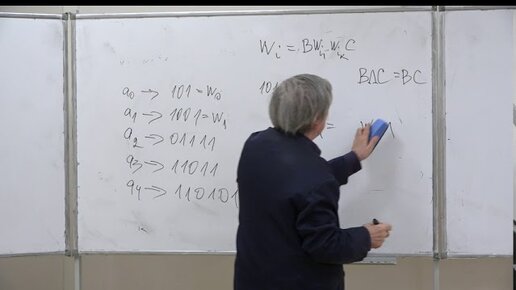 W_i = BW_{i_1} W_{i_k} C
BΛC = BC
a_0 → 101 = W_0
101
a_1 → 1001 = W_1
=
a_2 → 01111
a_3 → 11011
a_4 → 110101